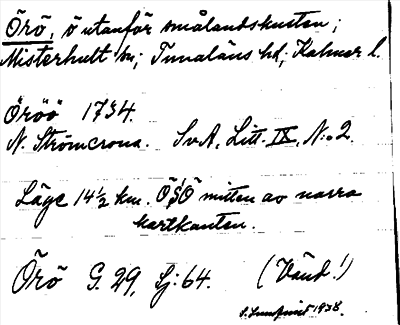 Örö, ö utanför smålandskusten;
Misterhult sn; Tunaläns hd; Kalmar l.
Öröö 1734.
N. Strömcrona. SvA, Litt. IX, N:o 2.
Läge 14½ km. ÖSÖ mitten av norra
kartkanten.
Örö G. 29, Lj: 64. (Vänd!)
1938.